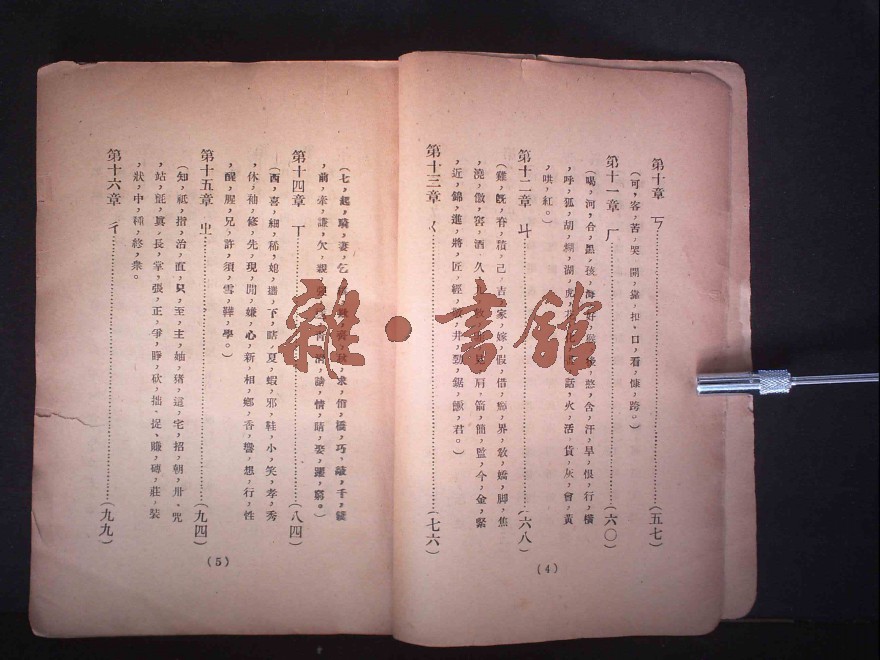 第十章 ㄎ……(五七)
(可,客,苦,哭,開,靠,扣,口,看,慷,跨。)
第十一章 ㄏ……(六〇)
(喝,河,合,黑,孩,海,好,候,後,憨,含,汗,旱,恨,行,橫
,呼,狐,胡,糊,湖,虎,花,化,話,火,活,貨,灰,會,黃
,哄,紅。)
第十二章 ㄐ……(六八)
(雞,旣,脊,積,己,吉,家,嫁,假,借,界,敎,嬌,脚,焦
,澆,傲,窖,酒,久,肩,箭,簡,監,今,金,緊
,近,錦,進,將,匠,經,井,勁,鋸,君。)
第十三章 ㄑ……(七六)
(七,起,騎,妻,乞,求,橋,巧,敲,千,
,前,謙,欠,親,請,情,晴,娶,窮。)
第十四章 ㄒ……(八四)
(西,喜,細,稀,媳,下,瞎,夏,蝦,邪,鞋,小,笑,孝,秀
,休,袖,修,先,現,閒,嫌,心,新,相,鄉,香,響,想,行,性
,醒,腥,兄,許,須,雪,靴,學。)
第十五章 ㄓ……(九四)
(知,祇,指,治,直,只,至,主,妯,猪,這,宅,招,朝,咒
,站,氈,眞,長,掌,張,正,爭,睜,砍,拙,捉,賺,磚,莊,裝
,狀,中,種,終,衆。
第十六章 ㄔ……(九九)
(4)
(5)
雜·書館